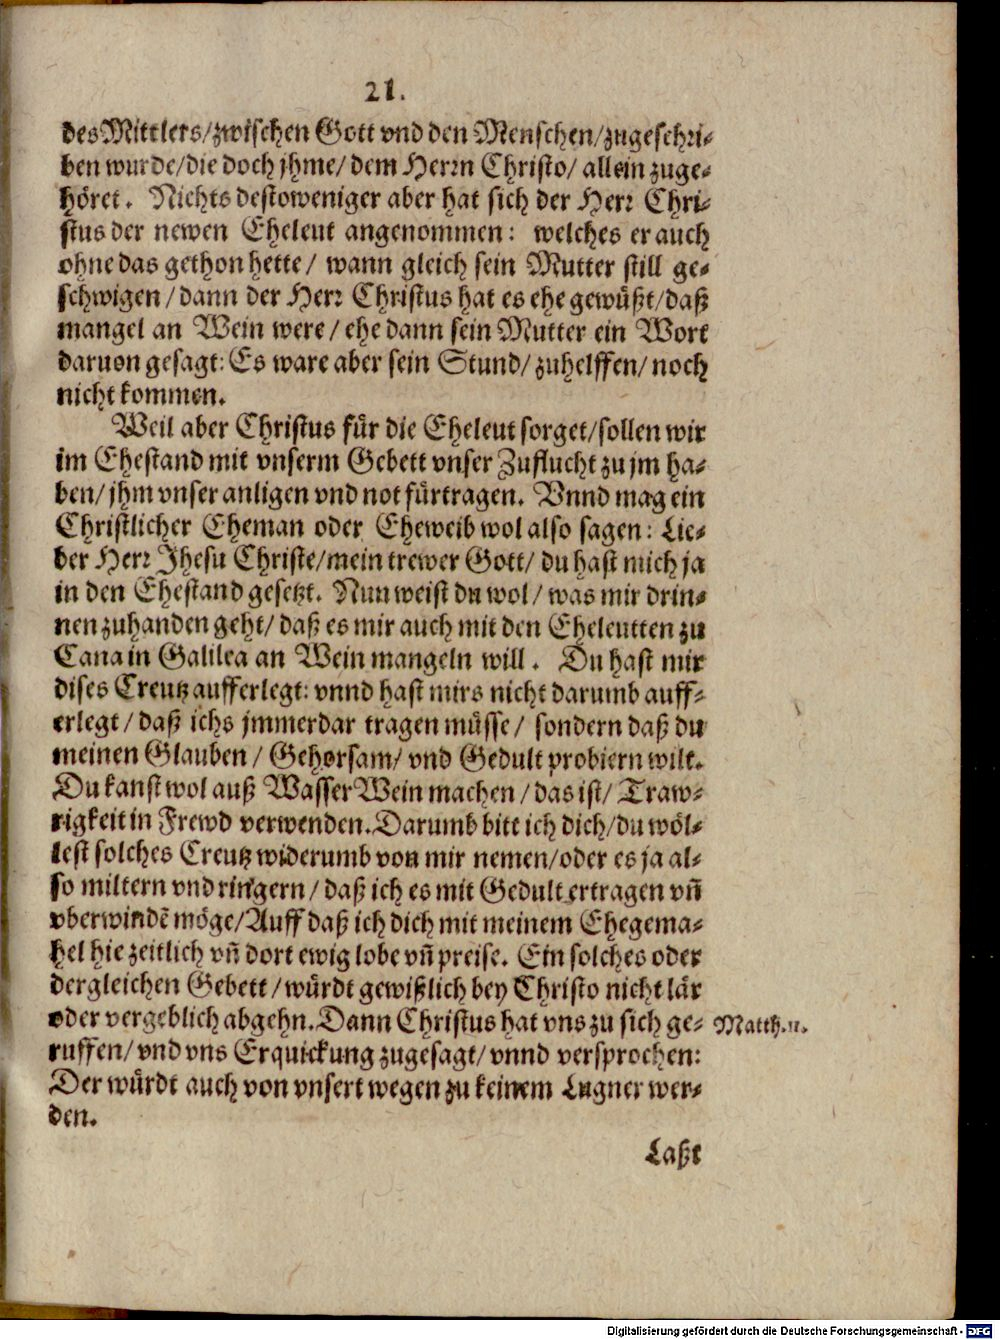 21.
des Mittlers/zwischen Gott vnd den Menschen/zugeschri-
ben wurde/die doch jhme/ dem Herrn Christo/ allein zuge-
höret. Nichts destoweniger aber hat sich der Herr Chri-
stus der newen Eheleut angenommen: welches er auch
ohne das gethon hette/ wann gleich sein Mutter still ge-
schwigen/dann der Herr Christus hat es ehe gewüßt/daß
mangel an Wein were/ehe dann sein Mutter ein Wort
daruon gesagt: Es ware aber sein Stund/zuhelffen/noch
nicht kommen.
Weil aber Christus für die Eheleut sorget/sollen wir
im Ehestand mit vnserm Gebett vnser Zuflucht zu jm ha-
ben/jhm vnser anligen vnd not fürtragen. Vnnd mag ein
Christlicher Eheman oder Eheweib wol also sagen: Lie-
ber Herr Jhesu Christe/mein trewer Gott/ du hast mich ja
in den Ehestand gesetzt. Nun weist du wol/ was mir drin-
nen zuhanden geht/daß es mir auch mit den Eheleutten zu
Cana in Galilea an Wein mangeln will. Du hast mir
dises Creutz aufferlegt: vnnd hast mirs nicht darumb auff-
erlegt/daß ichs jmmerdar tragen müsse/ sondern daß du
meinen Glauben/ Gehorsam/ vnd Gedult probiern wilt.
Du kanst wol auß Wasser Wein machen/das ist/ Traw-
rigkeit in Frewd verwenden. Darumb bitt ich dich/du wöl-
lest solches Creutz widerumb von mir nemen/oder es ja al-
so miltern vnd ringern/daß ich es mit Gedult ertragen vñ
vberwindẽ möge/Auff daß ich dich mit meinem Ehegema-
hel hie zeitlich vñ dort ewig lobe vñ preise. Ein solches oder
dergleichen Gebett/würdt gewißlich bey Christo nicht lär
oder vergeblich abgehn. Dann Christus hat vns zu sich ge-
Matth.11.
ruffen/vnd vns Erquickung zugesagt/vnnd versprochen:
Der würdt auch von vnsert wegen zu keinem Lugner wer-
den.
Laßt
Digitalisierung gefördert durch die Deutsche Forschungsgemeinschaft - DFG